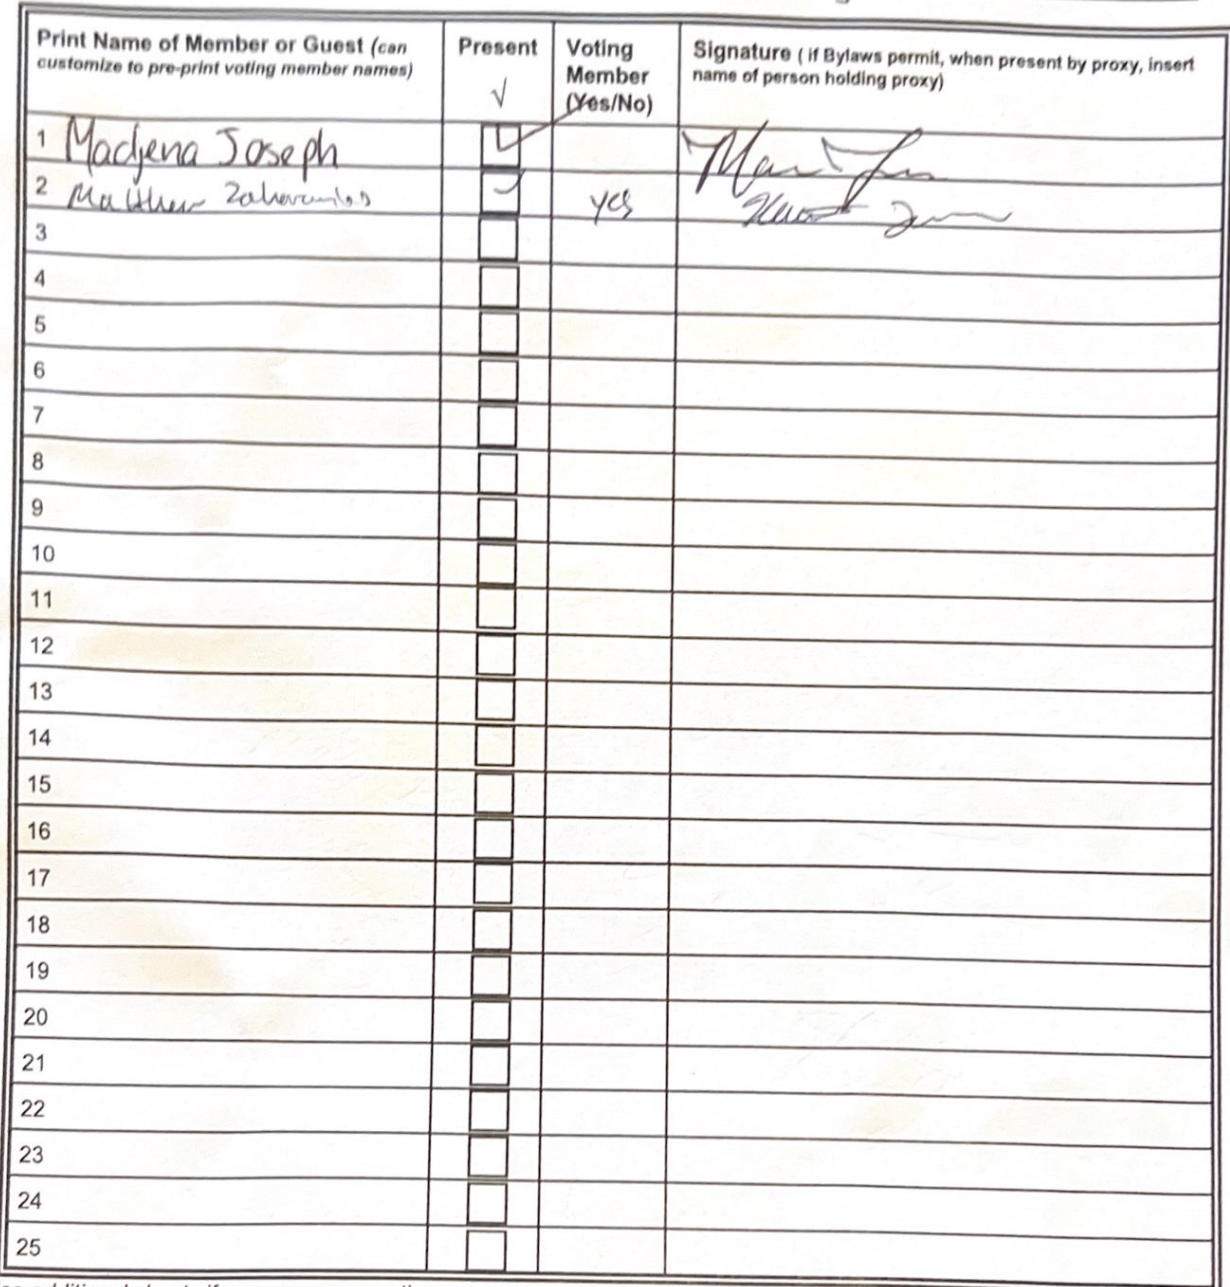 Print Name of Member or Guest (can
customize to pre-print voting member names)
Present
√
Voting
Member
(Yes/No)
Signature ( if Bylaws permit, when present by proxy, insert
name of person holding proxy)
1 Madjena Joseph
2 Matthew yes
3
4
5
6
7
8
9
10
11
12
13
14
15
16
17
18
19
20
21
22
23
24
25